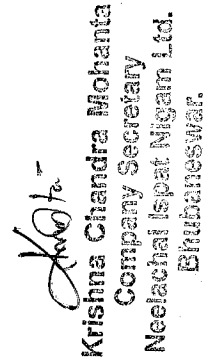 Krishna Chandra Mohanta
Company Secretary
Neelachal Ispat Nigam Ltd.
Bhubaneswar.